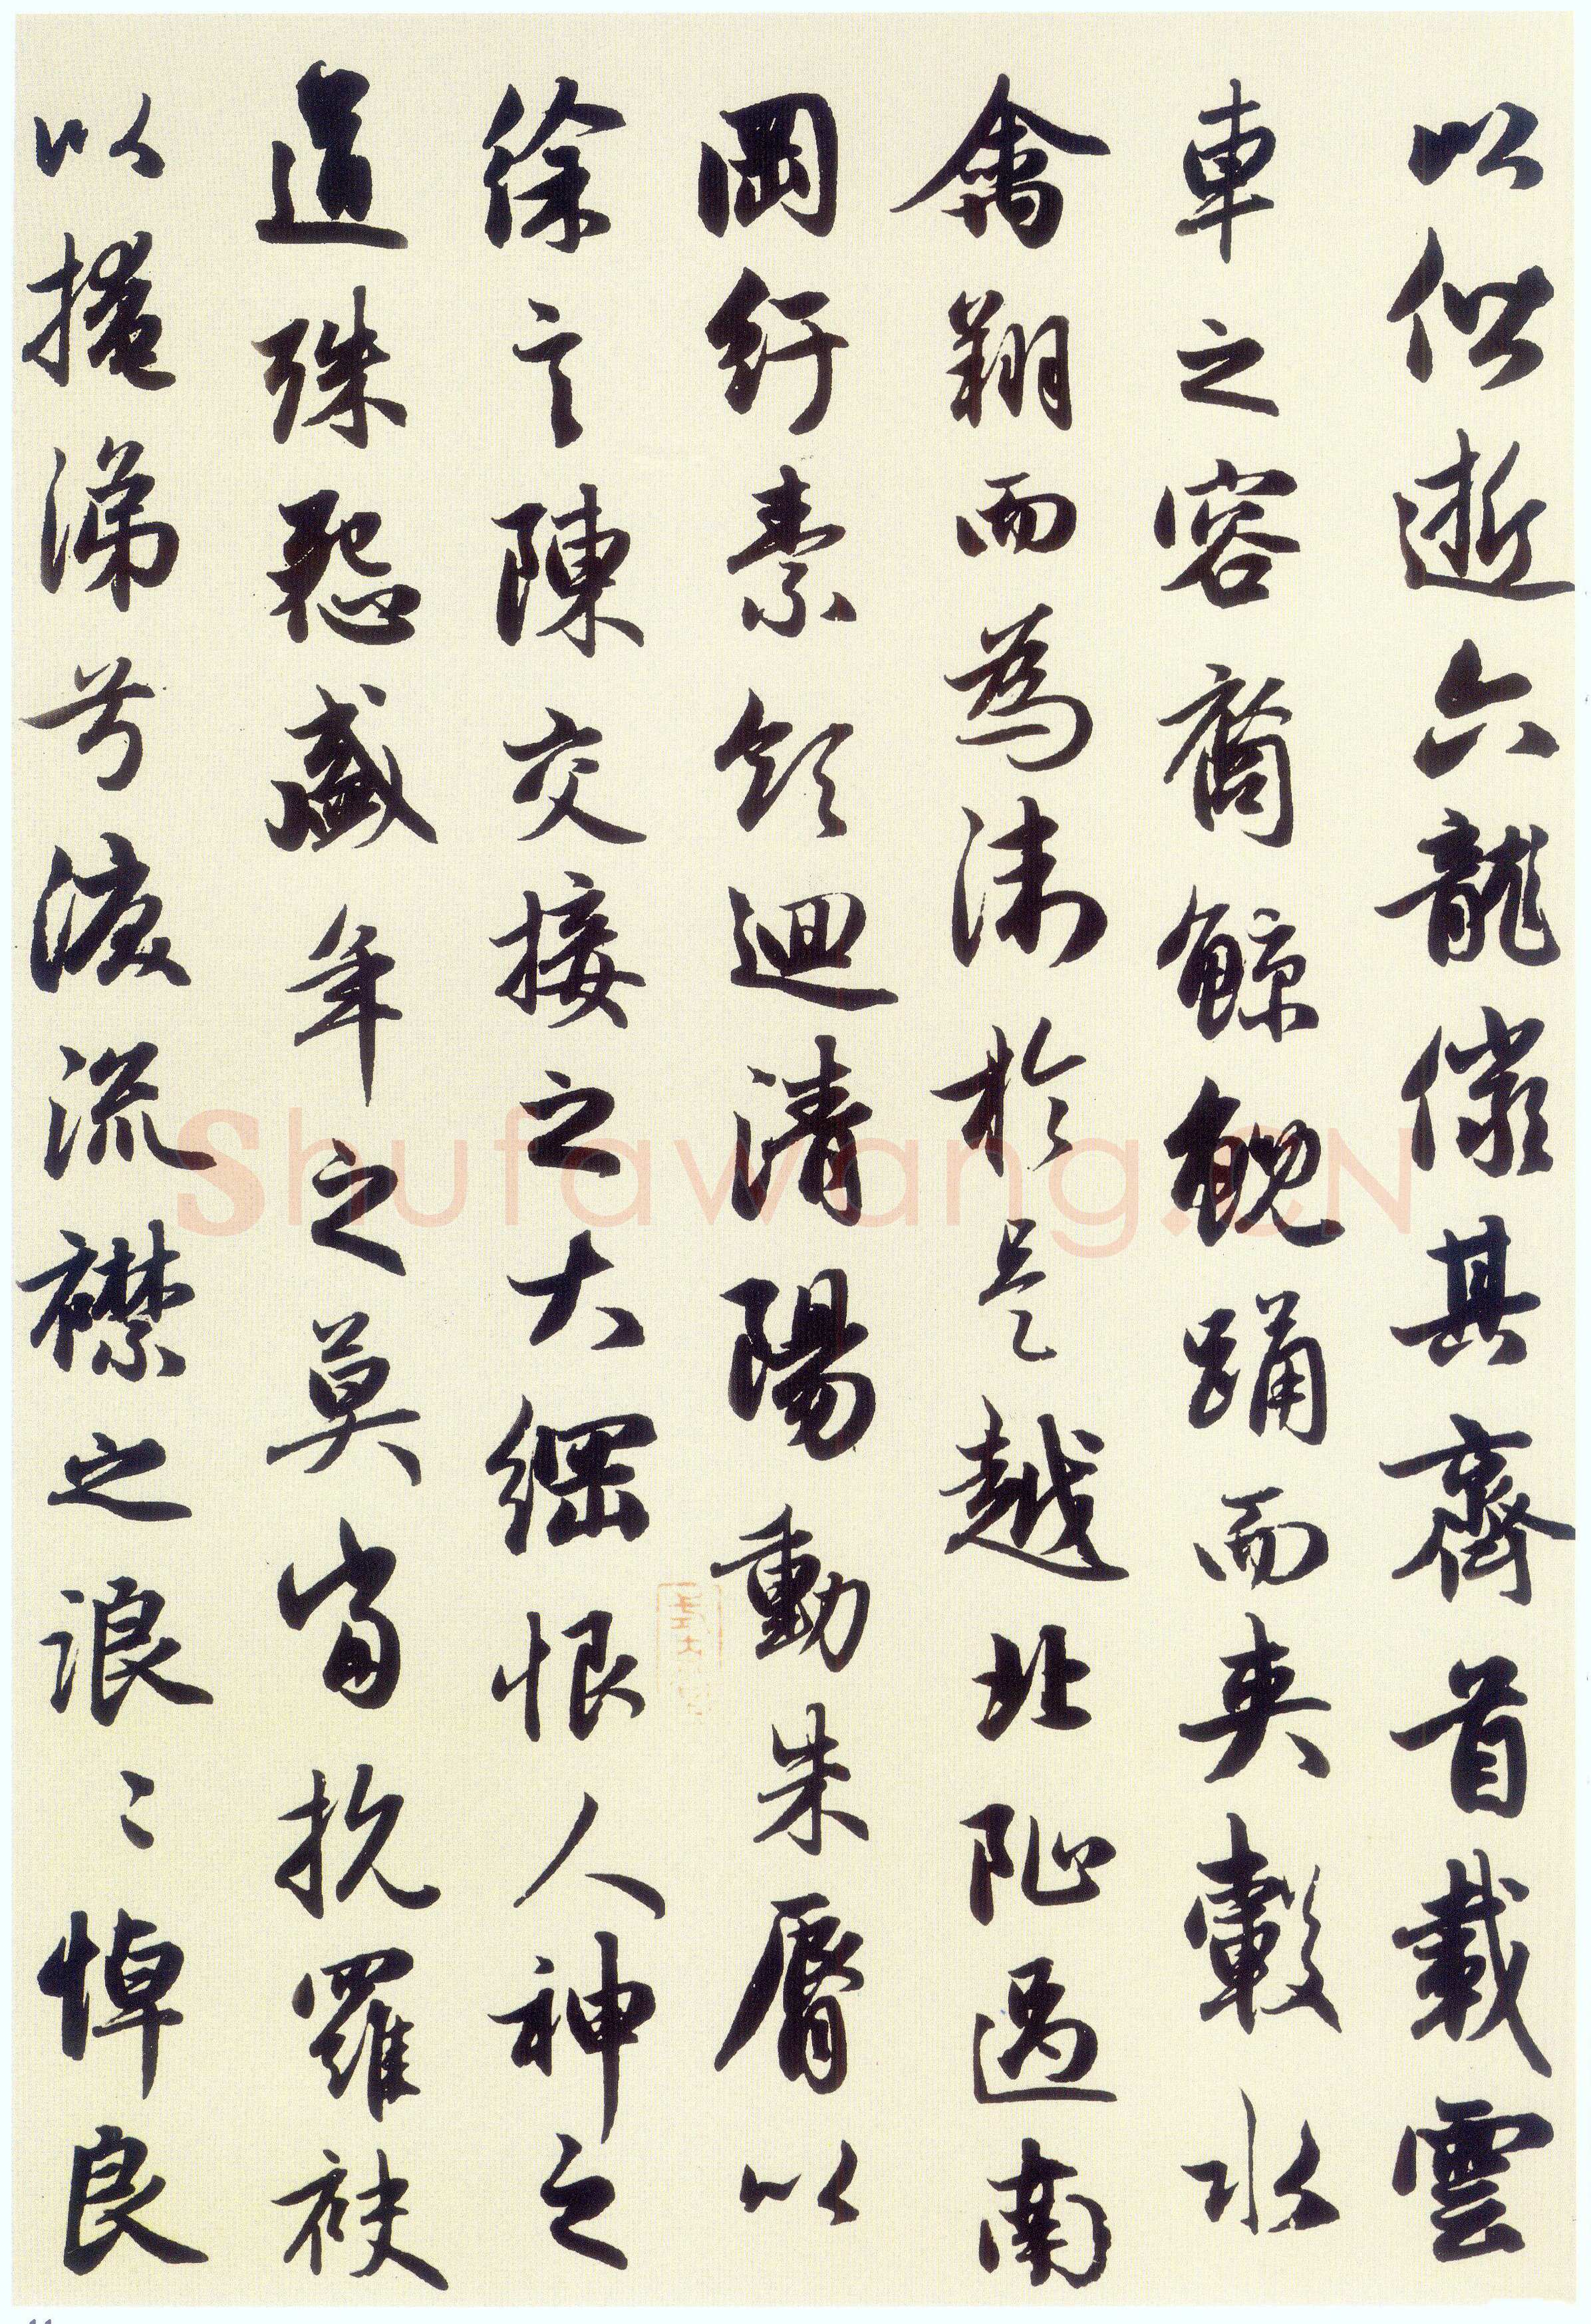 以偕逝六龍儼其齊首載雲
車之容裔鯨鯢踊而夾轂水
禽翔而為衛於是越北阯過南
岡紆素領迴清陽動朱脣以
徐言陳交接之大綱恨人神之
道殊怨盛年之莫當抗羅袂
以掩涕兮淚流襟之浪〻悼良
Shufawang.CN